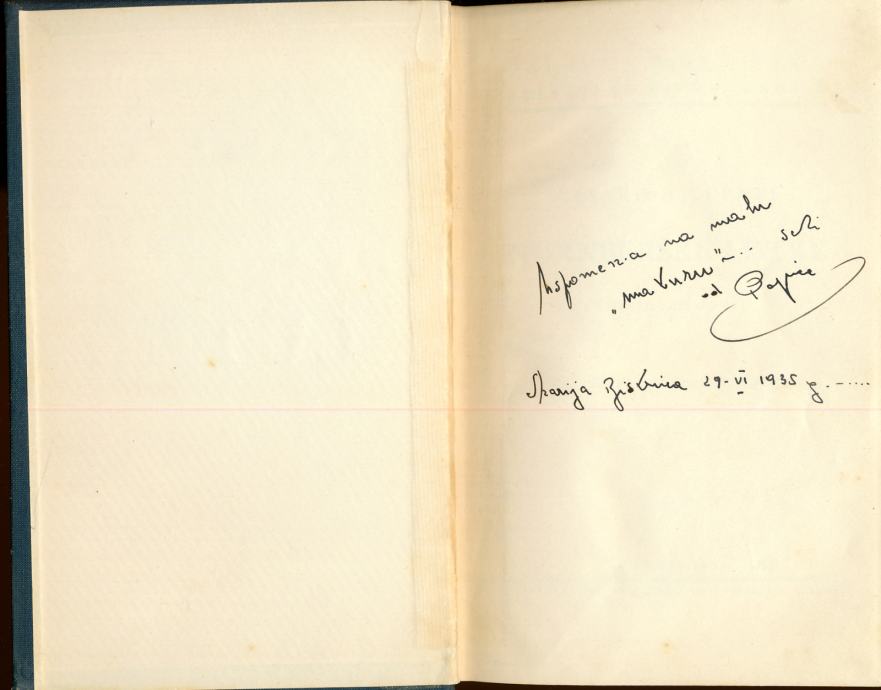 Uspomena na malu
„maturu"... seki
od
Marija Bistrica 29-VI 1935 g. -....